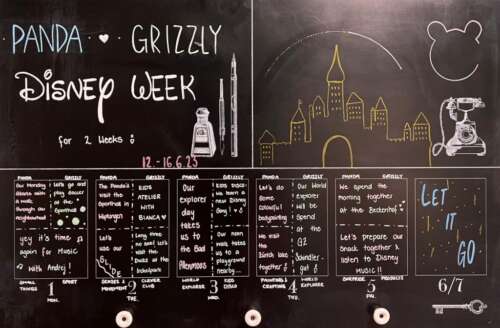 PANDA ♥ GRIZZLY
DISNEY WEEK
for 2 Weeks!
12.-16.6.23
PANDA GRIZZLY
Our Monday starts with a walk through the neighbourhood
Let's go and play soccer at the Sportihal
yey it's time again for Music
with Andrej!
SMALL THINGS 1 SPORT
MON.
PANDA GRIZZLY
The Panda's visit the Sporthal in
KIDS ATELIER WITH BIANCA ♥
Let's use our SLIDE
Long time no see! let's visit the Ducks at the
SENSES & MOVEMENT 2 CLEVER CLUB
TUE.
PANDA GRIZZLY
Our explorer day takes us to the Bad Allenmoos
KIDS DISCO: We learn a new Disney Song!
Our noon walk takes us to a playground nearby...
WORLD EXPLORER 3 KIDS DISCO
WED.
PANDA GRIZZLY
Let's do some colourful bodypainting
Our World explorer will be Spend at the GZ Schindlergut
We visit the Zürich lake together
PAINTING & CRAFTING 4 WORLD EXPLORER
PANDA GRIZZLY
We spend the morning together at the
Let's prepare our Snack together & listen to Disney MUSIC!!
SURPRISE 5 PROJECTS
LET IT GO
6/7